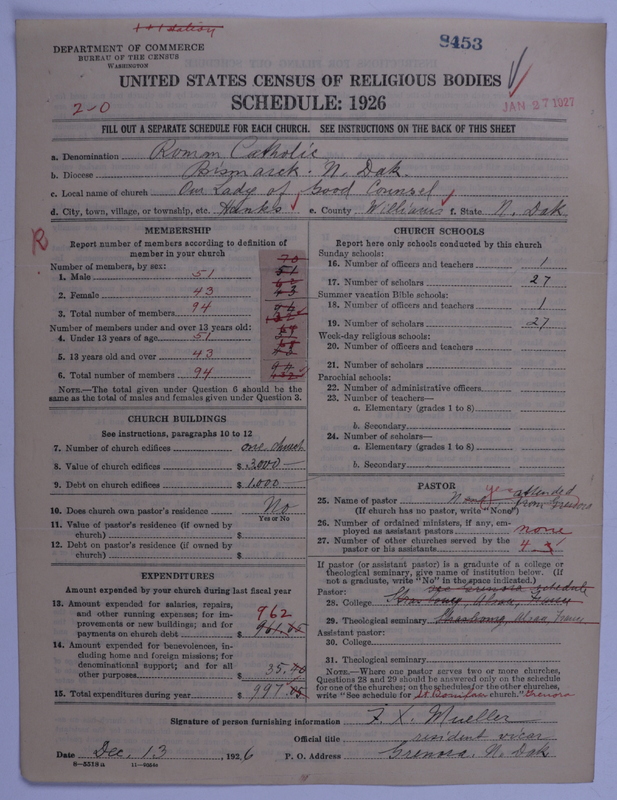 DEPARTMENT OF COMMERCE
BUREAU OF THE CENSUS
WASHINGTON
8453
UNITED STATES CENSUS OF RELIGIOUS BODIES
SCHEDULE: 1926
2-0
JAN 27 1927
FILL OUT A SEPARATE SCHEDULE FOR EACH CHURCH. SEE INSTRUCTIONS ON THE BACK OF THIS SHEET
a. Denomination Roman Catholic
b. Diocese Bismarck. N. Dak.
c. Local name of church Our Lady of Good Counsel
d. City, town, village, or township, etc. Hanks e. County Williams f. State N. Dak
R
MEMBERSHIP
Report number of members according to definition of member in your church
Number of members, by sex:
1. Male 51
2. Female 43
3. Total number of members 94
Number of members under and over 13 years old:
4. Under 13 years of age 51
5. 13 years old and over 43
6. Total number of members 94
NOTE.—The total given under Question 6 should be the same as the total of males and females given under Question 3.
CHURCH BUILDINGS
See instructions, paragraphs 10 to 12
7. Number of church edifices one church
8. Value of church edifices $ 3,000
9. Debt on church edifices $ 1,000
10. Does church own pastor's residence? No
Yes or No
11. Value of pastor's residence (if owned by church) $
12. Debt on pastor's residence (if owned by church) $
EXPENDITURES
Amount expended by your church during last fiscal year
13. Amount expended for salaries, repairs, and other running expenses; for improvements or new buildings; and for payments on church debt $ 962
14. Amount expended for benevolences, including home and foreign missions; for denominational support; and for all other purposes $ 35.40
15. Total expenditures during year $ 997.05
CHURCH SCHOOLS
Report here only schools conducted by this church
Sunday schools:
16. Number of officers and teachers 1
17. Number of scholars 27
Summer vacation Bible schools:
18. Number of officers and teachers 1
19. Number of scholars 27
Week-day religious schools:
20. Number of officers and teachers
21. Number of scholars
Parochial schools:
22. Number of administrative officers
23. Number of teachers—
a. Elementary (grades 1 to 8)
b. Secondary
24. Number of scholars—
a. Elementary (grades 1 to 8)
b. Secondary
PASTOR
25. Name of pastor None yes attended from Grenora
(If church has no pastor, write "None")
26. Number of ordained ministers, if any, employed as assistant pastors none
27. Number of other churches served by the pastor or his assistants 4 3
If pastor (or assistant pastor) is a graduate of a college or theological seminary, give name of institution below. (If not a graduate, write "No" in the space indicated.)
Pastor: see Grenora schedule
28. College
29. Theological seminary
Assistant pastor:
30. College
31. Theological seminary
NOTE.—Where one pastor serves two or more churches, Questions 28 and 29 should be answered only on the schedule for one of the churches; on the schedules for the other churches, write "See schedule for St Boniface church." Grenora
Signature of person furnishing information F. X. Mueller
Official title resident vicar
Date Dec. 13, 1926 P. O. Address Grenora, N. Dak
8-5518a 11-9504a